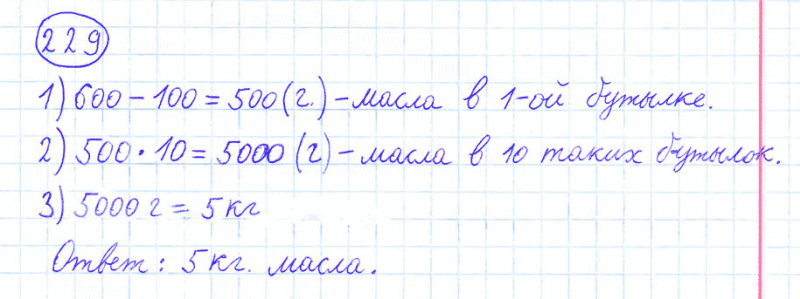 229
1) 600 - 100 = 500 (г.) - масла в 1-ой бутылке.
2) 500 · 10 = 5000 (г) - масла в 10 таких бутылок.
3) 5000 г = 5 кг
Ответ: 5 кг. масла.